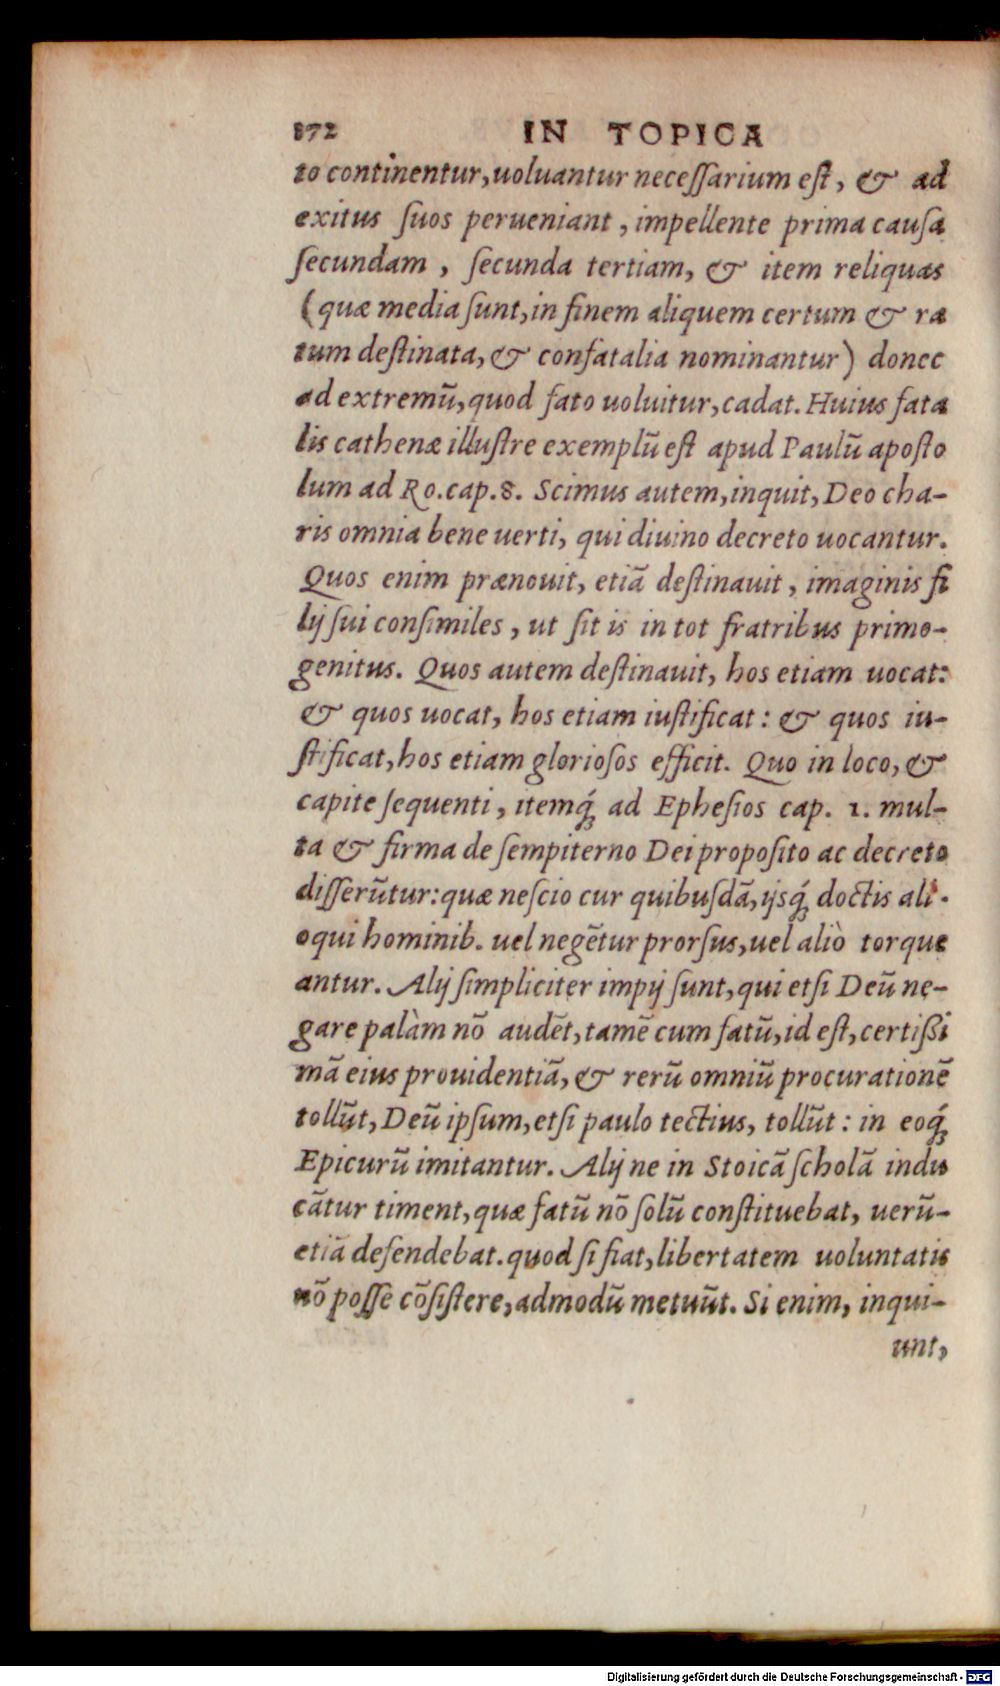 172 IN TOPICA
to continentur, uoluantur necessarium est, & ad
exitus suos perueniant, impellente prima causa
secundam, secunda tertiam, & item reliquas
(quæ media sunt, in finem aliquem certum & ra
tum destinata, & confatalia nominantur) donec
ad extremũ, quod fato uoluitur, cadat. Huius fata
lis cathenæ illustre exemplũ est apud Paulũ aposto
lum ad Ro. cap. 8. Scimus autem, inquit, Deo cha-
ris omnia bene uerti, qui diuino decreto uocantur.
Quos enim prænouit, etiã destinauit, imaginis fi
lij sui consimiles, ut sit is in tot fratribus primo-
genitus. Quos autem destinauit, hos etiam uocat:
& quos uocat, hos etiam iustificat: & quos iu-
stificat, hos etiam gloriosos efficit. Quo in loco, &
capite sequenti, itemq́ ad Ephesios cap. 1. mul-
ta & firma de sempiterno Dei proposito ac decreto
disserũtur: quæ nescio cur quibusdã, ijsq́ doctis ali-
oqui hominib. uel negẽtur prorsus, uel aliò torque
antur. Alij simpliciter impij sunt, qui etsi Deũ ne-
gare palàm nõ audẽt, tamẽ cum fatũ, id est, certißi
mã eius prouidentiã, & rerũ omniũ procurationẽ
tollũt, Deũ ipsum, etsi paulo tectius, tollũt: in eoq́
Epicurũ imitantur. Alij ne in Stoicã scholã indu
cãtur timent, quæ fatũ nõ solũ constituebat, uerũ-
etiã defendebat. quod si fiat, libertatem uoluntatis
nõ posse cõsistere, admodũ metuũt. Si enim, inqui-
unt,
Digitalisierung gefördert durch die Deutsche Forschungsgemeinschaft - DFG